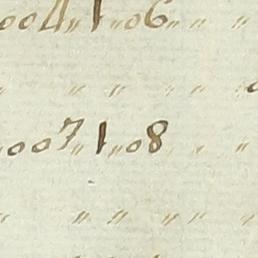 004〃1〃06〃 〃 〃
〃 〃 〃 〃 〃 〃
007〃1〃08 〃 〃 〃
〃 〃 〃 〃 〃 〃